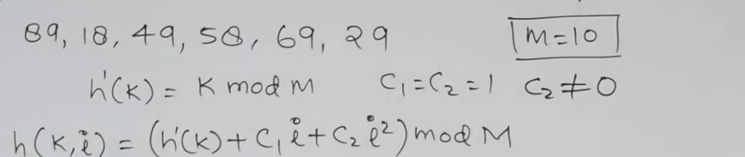 89, 18, 49, 58, 69, 29 M=10
h'(K) = K mod M C₁=C₂=1 C₂≠0
h(K,i) = (h'(K)+C₁i+C₂i²) mod M